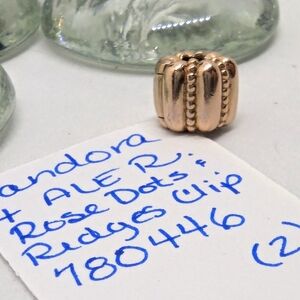 andora
+ ALE R
Rose Dots "
Ridges Clip
780446
(2)